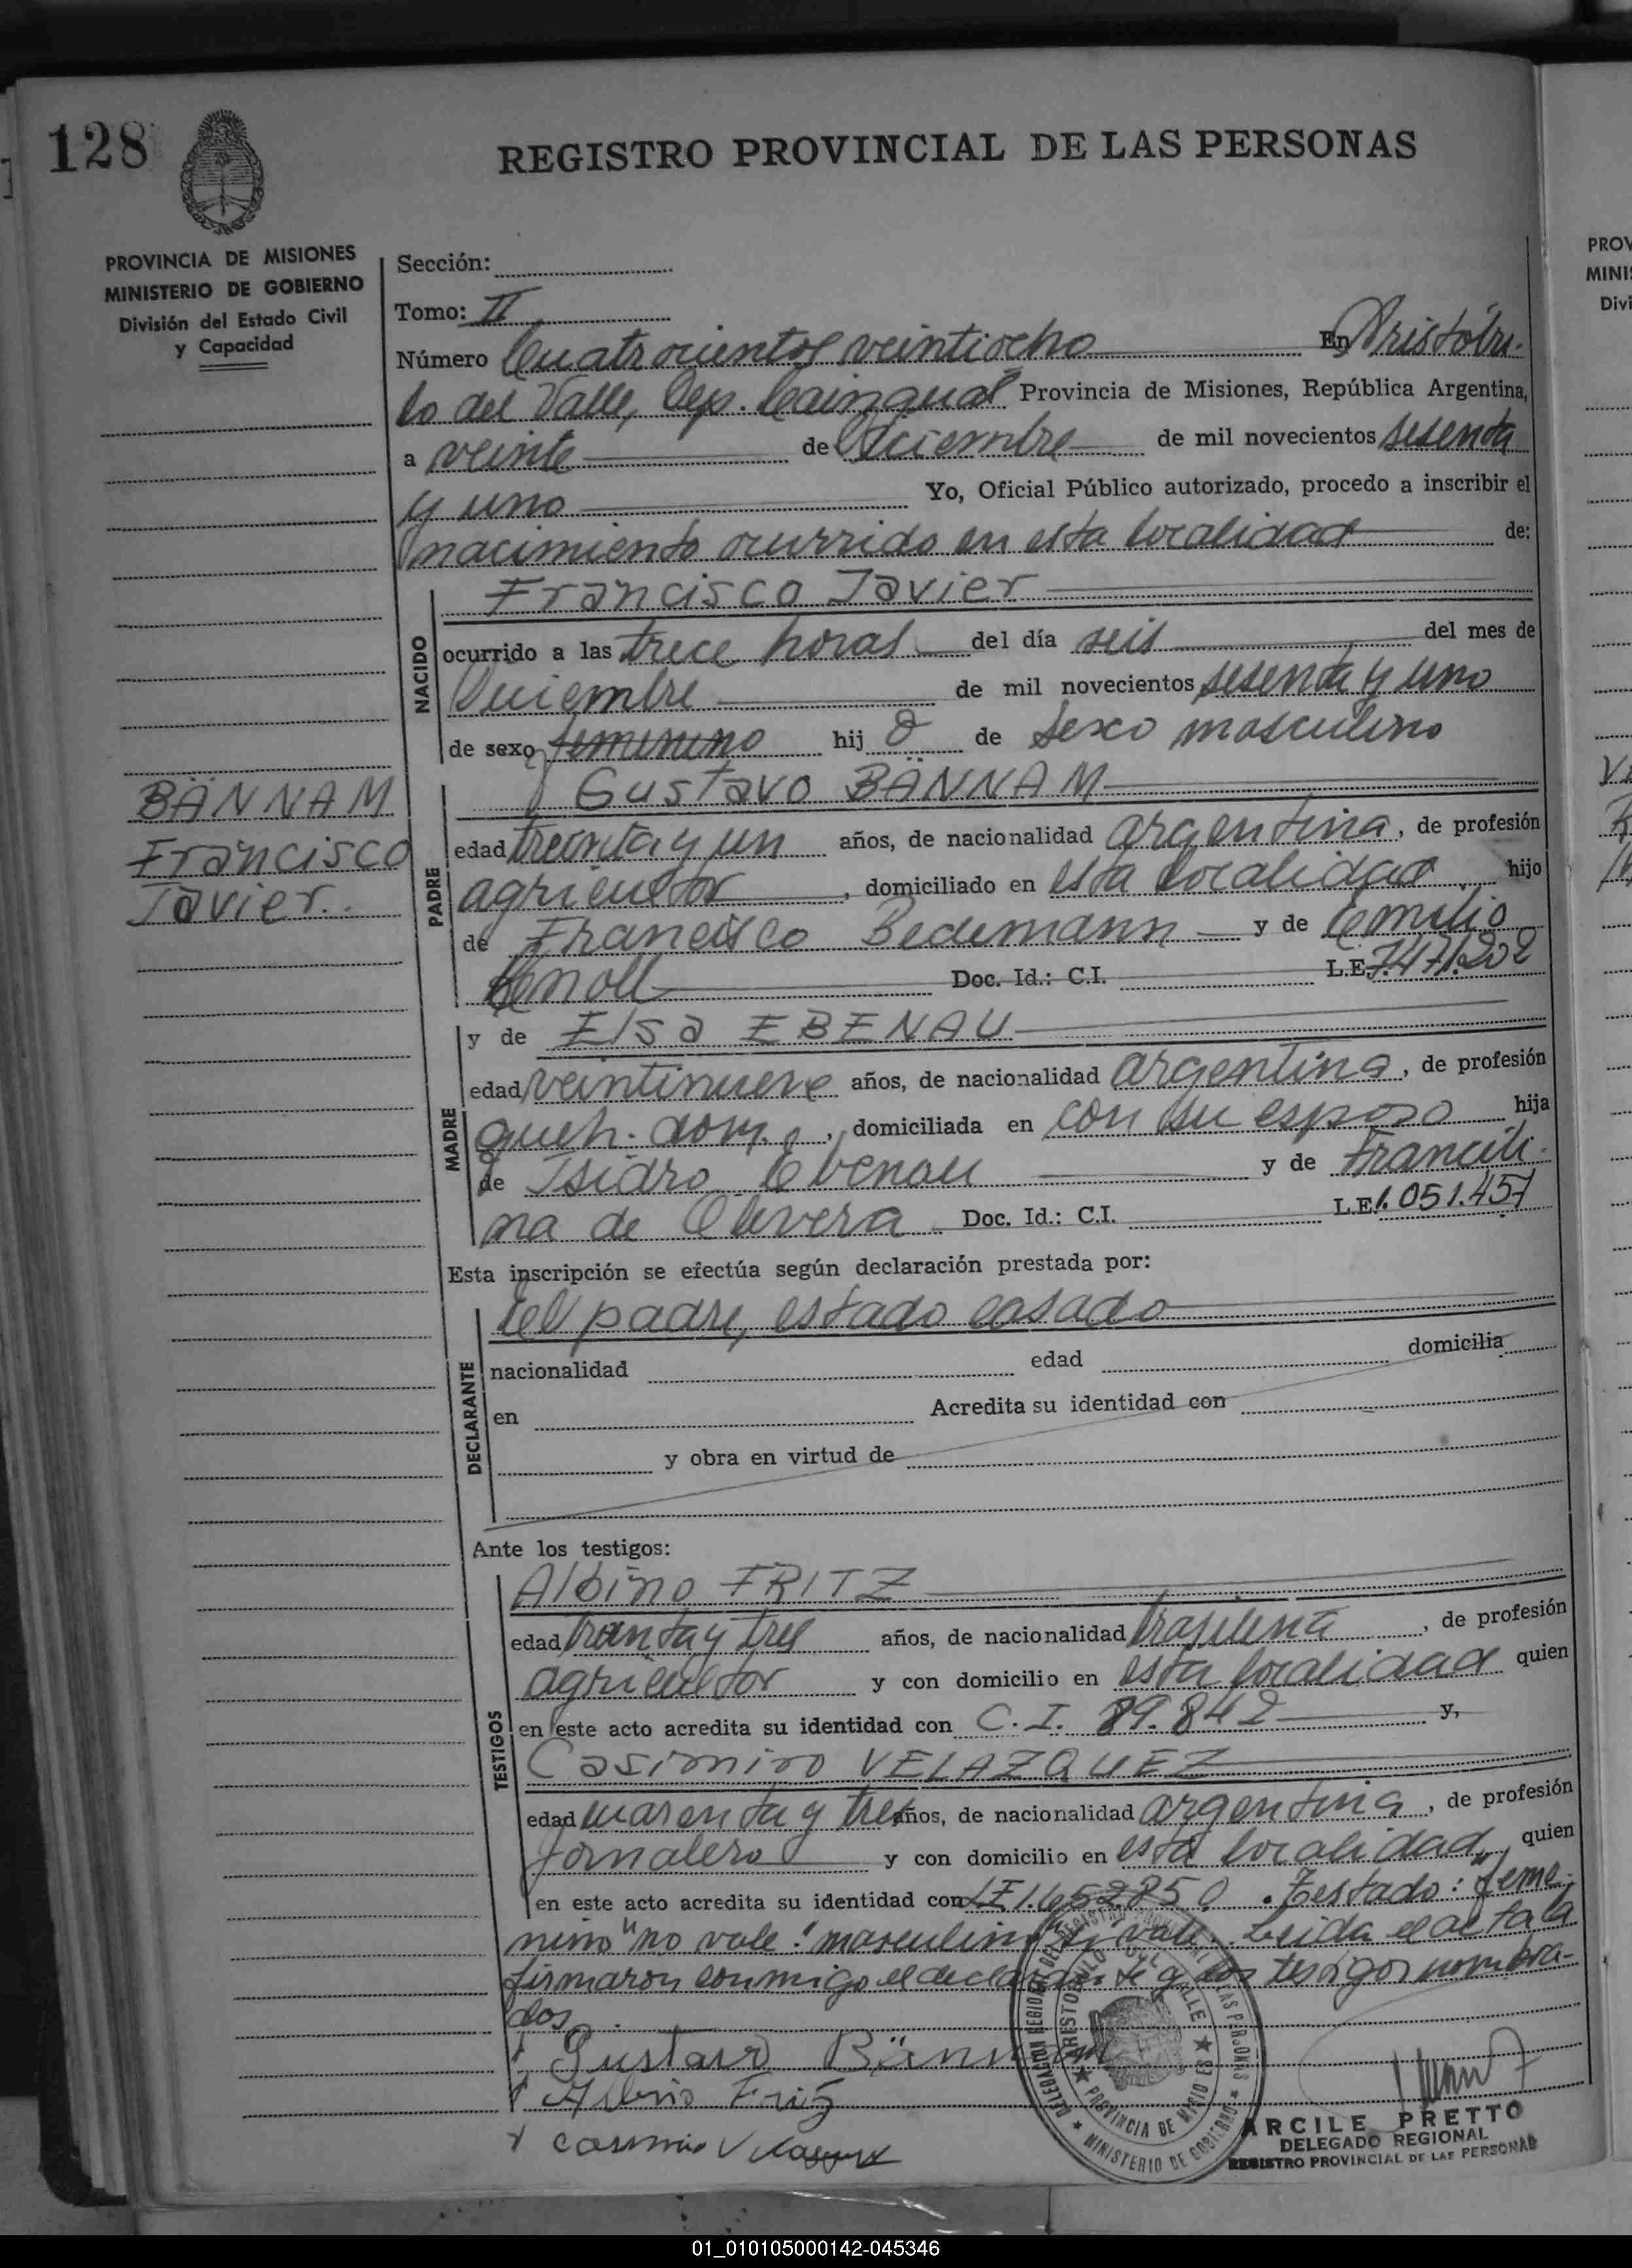 128
REGISTRO PROVINCIAL DE LAS PERSONAS
PROVINCIA DE MISIONES
MINISTERIO DE GOBIERNO
División del Estado Civil
y Capacidad
Sección:
Tomo: II
Número Cuatrocientos veintiocho En Aristóbu-
lo del Valle, Dep. Cainguás Provincia de Misiones, República Argentina,
a veinte de Diciembre de mil novecientos sesenta
y uno Yo, Oficial Público autorizado, procedo a inscribir el
nacimiento ocurrido en esta localidad de:
NACIDO
Francisco Javier
ocurrido a las trece horas del día seis del mes de
Diciembre de mil novecientos sesenta y uno
de sexo femenino hij o de sexo masculino
BÄNNAM
Francisco
Javier.
PADRE
Gustavo BÄNNAM
edad treinta y un años, de nacionalidad argentina, de profesión
agricultor, domiciliado en esta localidad hijo
de Francisco y de
Knoll Doc. Id.: C.I. L.E. 7.471.202
MADRE
y de Elsa EBENAU
edad veintinueve años, de nacionalidad argentina, de profesión
queh. dom., domiciliada en con su esposo hija
de Isidro Ebenau y de Franceli-
na de Olivera Doc. Id.: C.I. L.E. 1.051.457
Esta inscripción se efectúa según declaración prestada por:
DECLARANTE
del padre, estado casado
nacionalidad edad domicilia
en Acredita su identidad con
y obra en virtud de
Ante los testigos:
TESTIGOS
Albino FRITZ
edad treinta y tres años, de nacionalidad brasilena, de profesión
agricultor y con domicilio en esta localidad quien
en este acto acredita su identidad con C.I. 89.842 y,
Casimiro VELAZQUEZ
edad cuarenta y tres años, de nacionalidad argentina, de profesión
jornalero y con domicilio en esta localidad, quien
en este acto acredita su identidad con LE . Testado: "feme-
nino" no vale: "masculino" si vale. Leida el acta la
firmaron conmigo el declarante y los testigos nombra-
dos.
Gustavo Bännam
Albino Fritz
Casimiro Velazquez
DELEGACION REGIONAL DEL REGISTRO PROVINCIAL DE LAS PERSONAS
ARISTOBULO DEL VALLE
PROVINCIA DE MISIONES
MINISTERIO DE GOBIERNO
ARCILE PRETTO
DELEGADO REGIONAL
REGISTRO PROVINCIAL DE LAS PERSONAS
PROV
MINIS
Divi
01_010105000142-045346